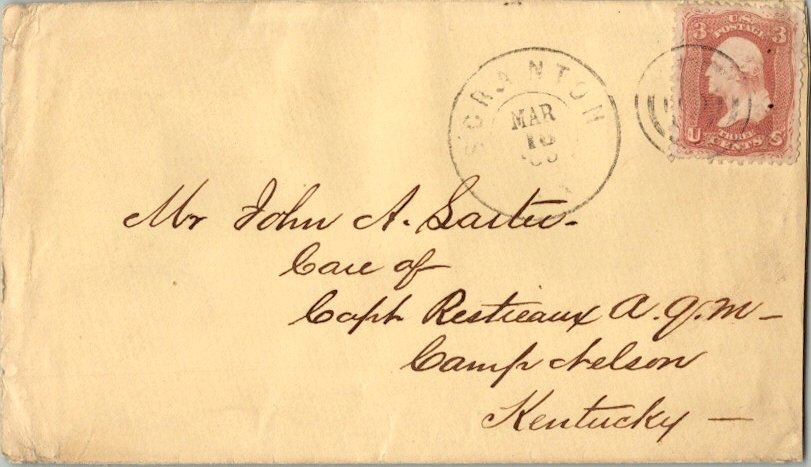 3 U.S. 3
POSTAGE
U THREE S
CENTS
SCRANTON
MAR
18
Mr John A.
Care of
Capt. Restieaux A. Q. M-
Camp Nelson
Kentucky —